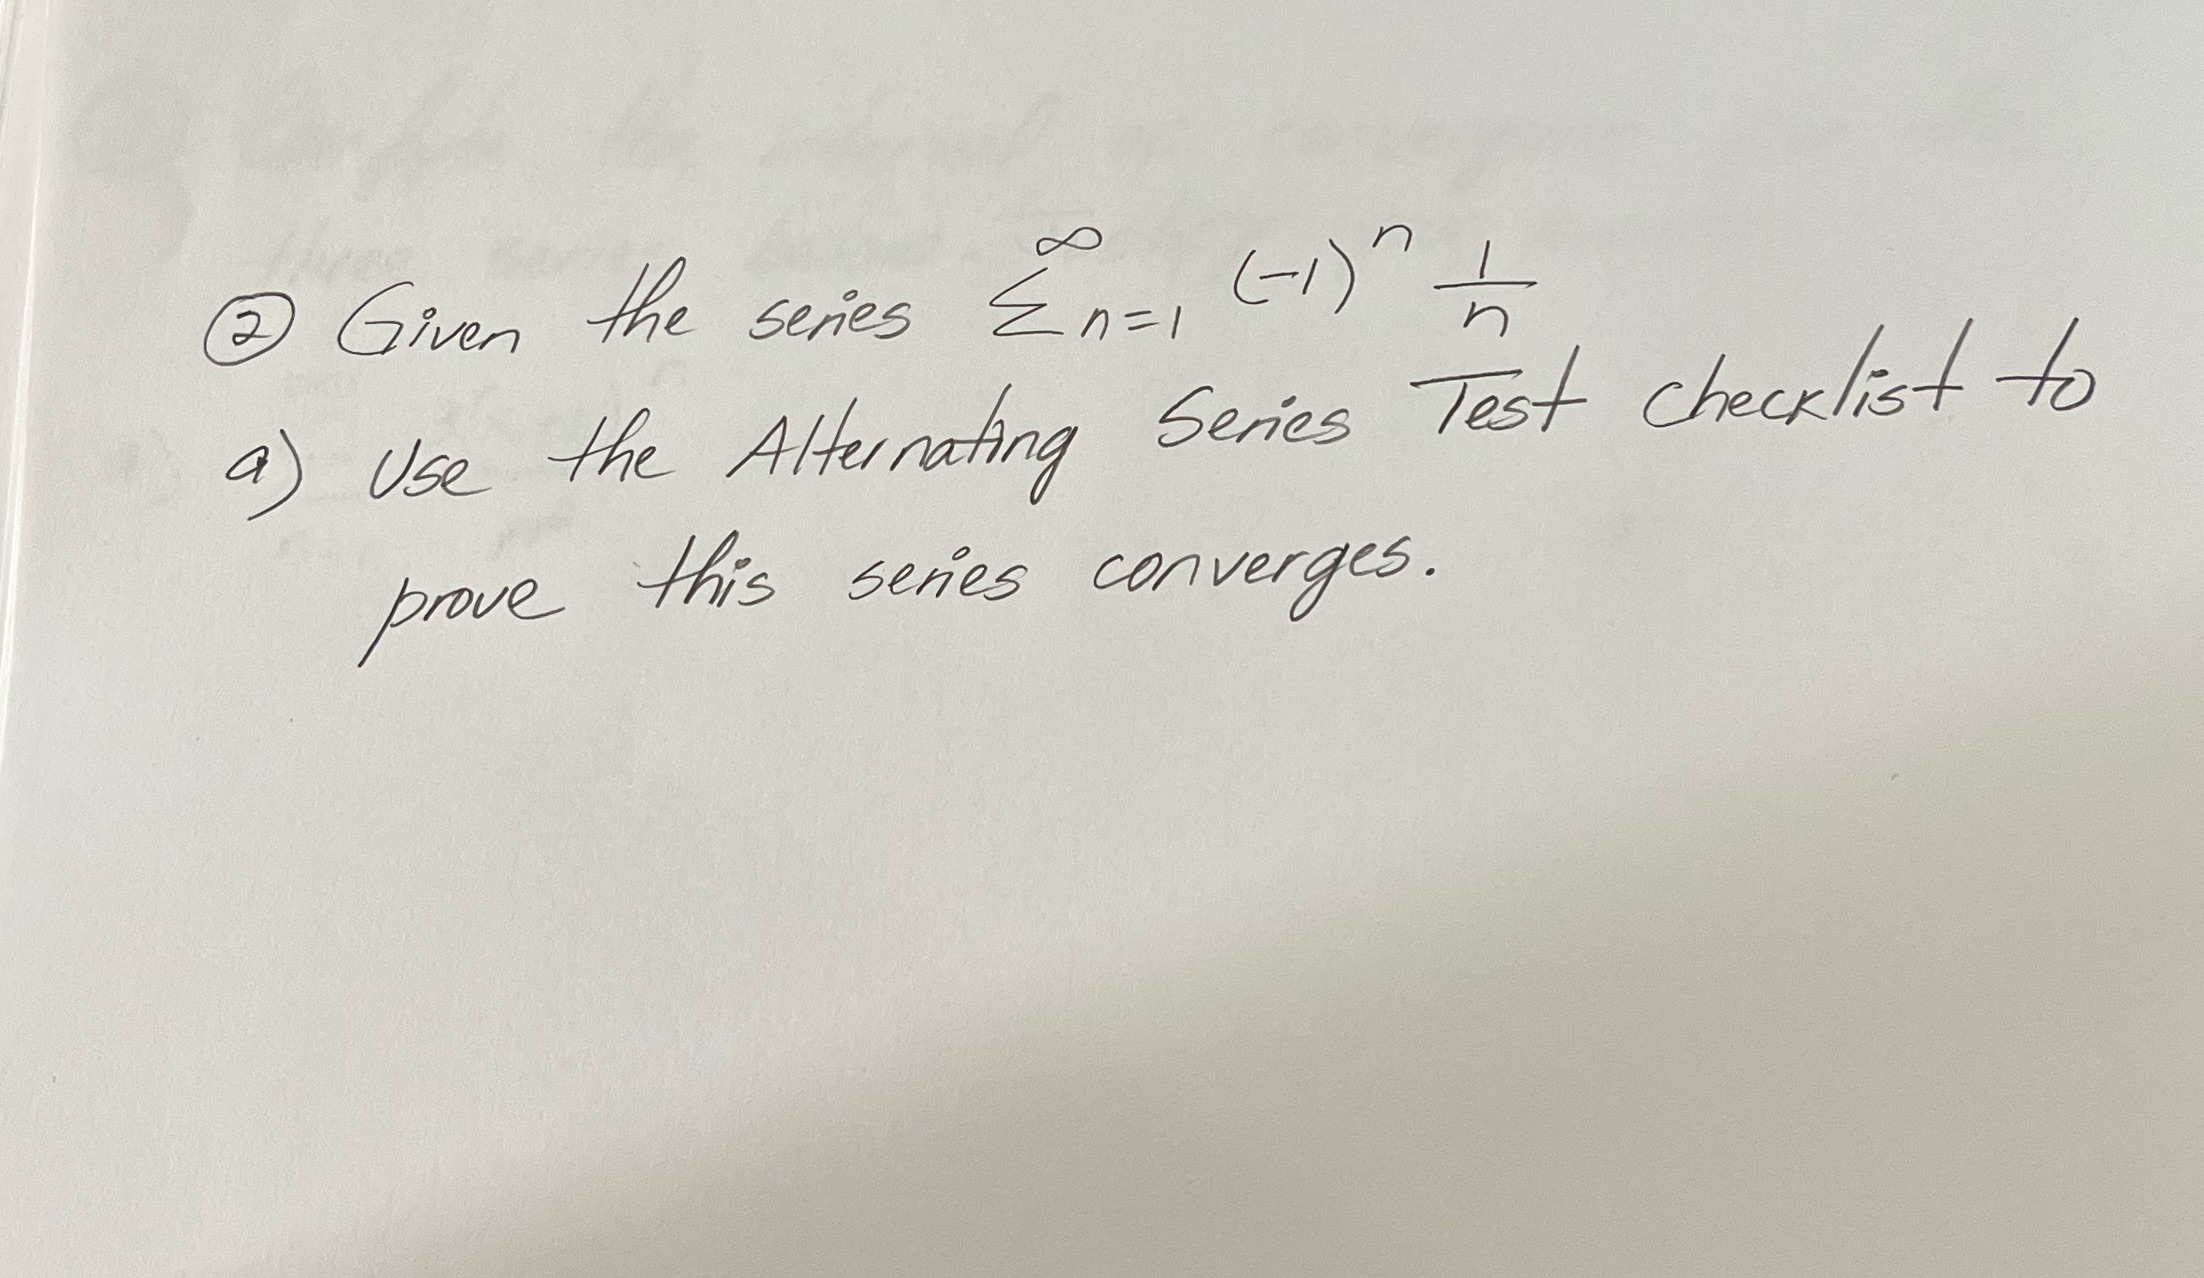 ② Given the series ∑_{n=1}^{∞} (-1)^n 1/n
a) Use the Alternating Series Test checklist to
prove this series converges.